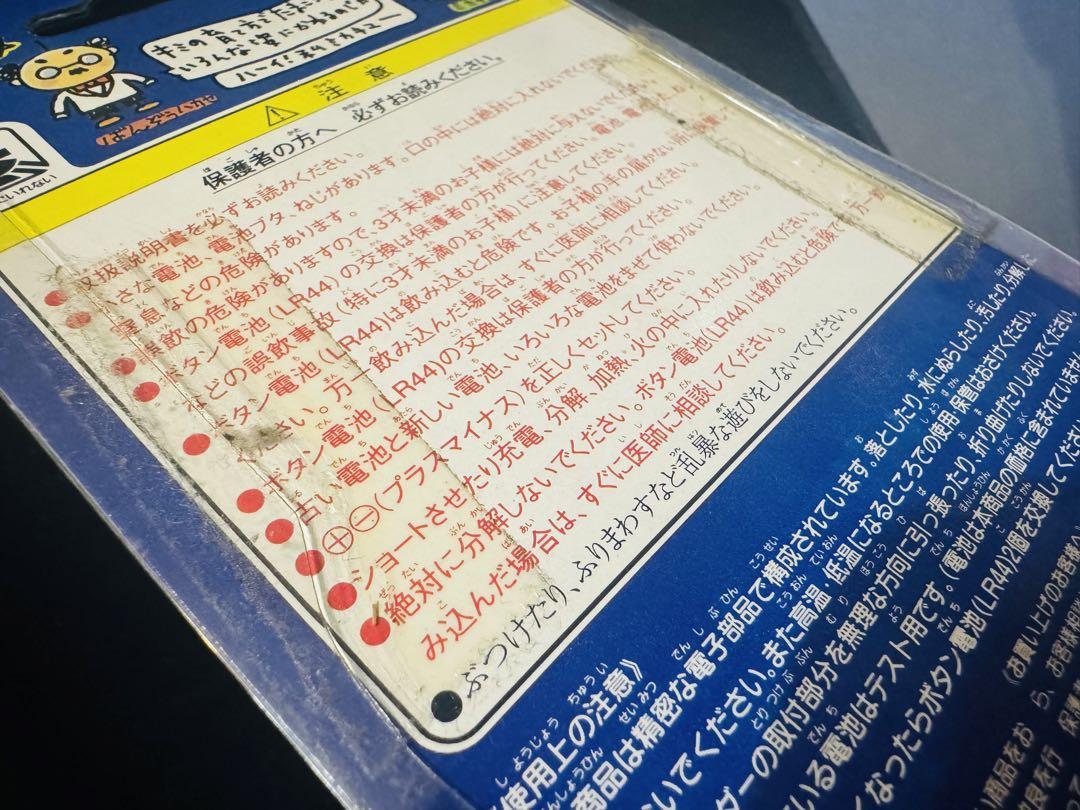 キミの育て方がたま
いろんな姿にかわるの
ハーイ!
ばんぞうハカセ
にいれない
⚠ 注意
保護者の方へ 必ずお読みください。
取扱説明書を必ずお読みください。
さな電池、電池ブタ、ねじがあります。口の中には絶対に入れないでくださ
窒息などの危険があります。
●誤飲の危険がありますので、3才未満のお子様には絶対に与えな
●ボタン電池(LR44)の交換は保護者の方が行ってください。電池、電
などの誤飲事故(特に3才未満のお子様)に注意してください。
●ボタン電池(LR44)は飲み込むと危険です。お子様の手の届かない所に
さい。万一飲み込んだ場合は、すぐに医師に相談してください。
●ボタン電池(LR44)の交換は保護者の方が行ってください。
●古い電池と新しい電池、いろいろな電池をまぜて使わないでください。
●⊕⊖(プラスマイナス)を正しくセットしてください。
●ショートさせたり充電、分解、加熱、火の中に入れたりしないでください。
●絶対に分解しないでください。ボタン電池(LR44)は飲み込むと危険で
み込んだ場合は、すぐに医師に相談してください。
●ぶつけたり、ふりまわすなど乱暴な遊びをしないでください。
使用上の注意》
商品は精密な電子部品で構成されています。落としたり、水にぬらしたり、汚したり、分解し
いでください。また高温、低温になるところでの使用、保管はおさけください。
ダーの取付部分を無理な方向に引っ張ったり、折り曲げたりしないでください。
いる電池はテスト用です。(電池は本商品の価格に含まれていませ
くなったらボタン電池(LR44)2個を交換してくださ
《お買い上げのお客様へ